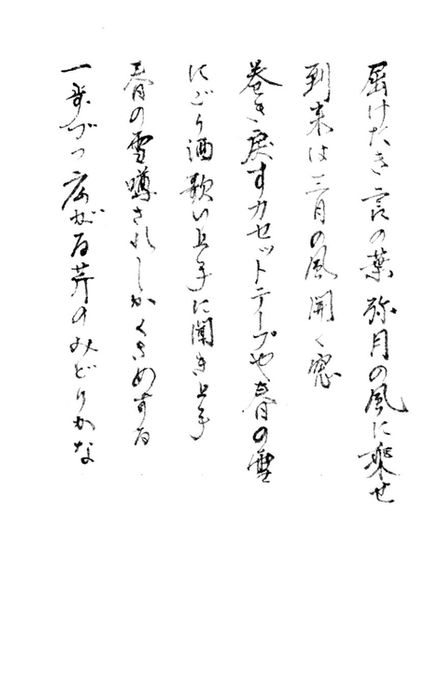 届けたき言の葉弥月の風に乗せ
到来は三月の風開く窓
巻き戻すカセットテープや春の雪
にごり酒歌い上手に聞き上手
春の雪噂されしかくさめする
一歩づつ広がる芹のみどりかな